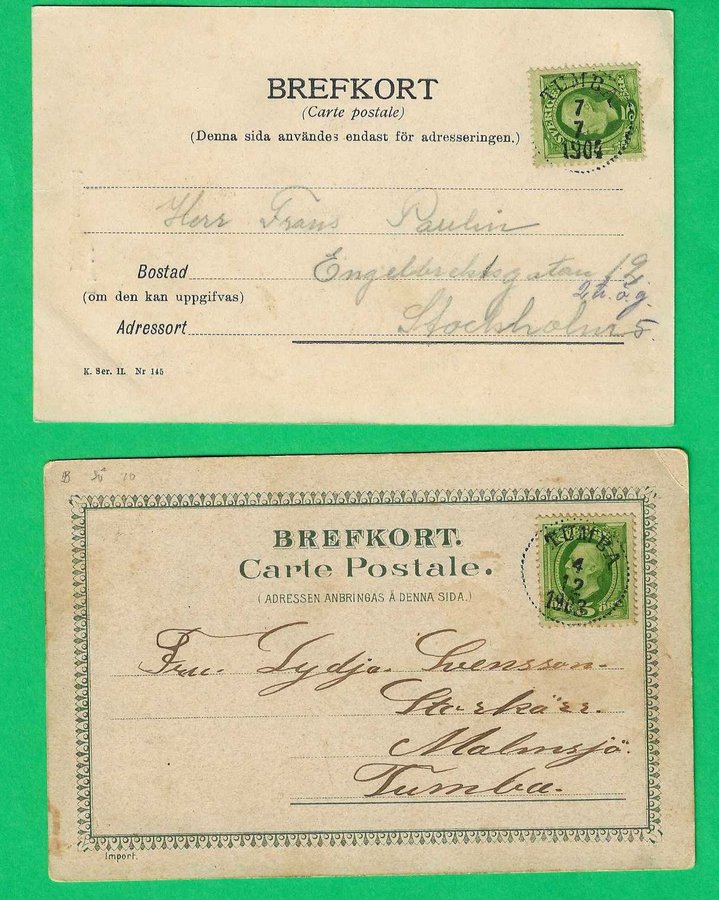 BREFKORT
(Carte postale)
(Denna sida användes endast för adresseringen.)
TUMBA
7
7
1904
Herr Frans Paulin
Bostad Engelbrektsgatan 12
(om den kan uppgifvas) 2 h. ö. g.
Adressort Stockholm 5.
K. Ser. II. Nr 145
B
10
BREFKORT.
Carte Postale.
(ADRESSEN ANBRINGAS Å DENNA SIDA.)
TUMBA
4
12
1903
5
Fru Lydja Svensson.
Storkärr.
Malmsjö.
Tumba.
Import.